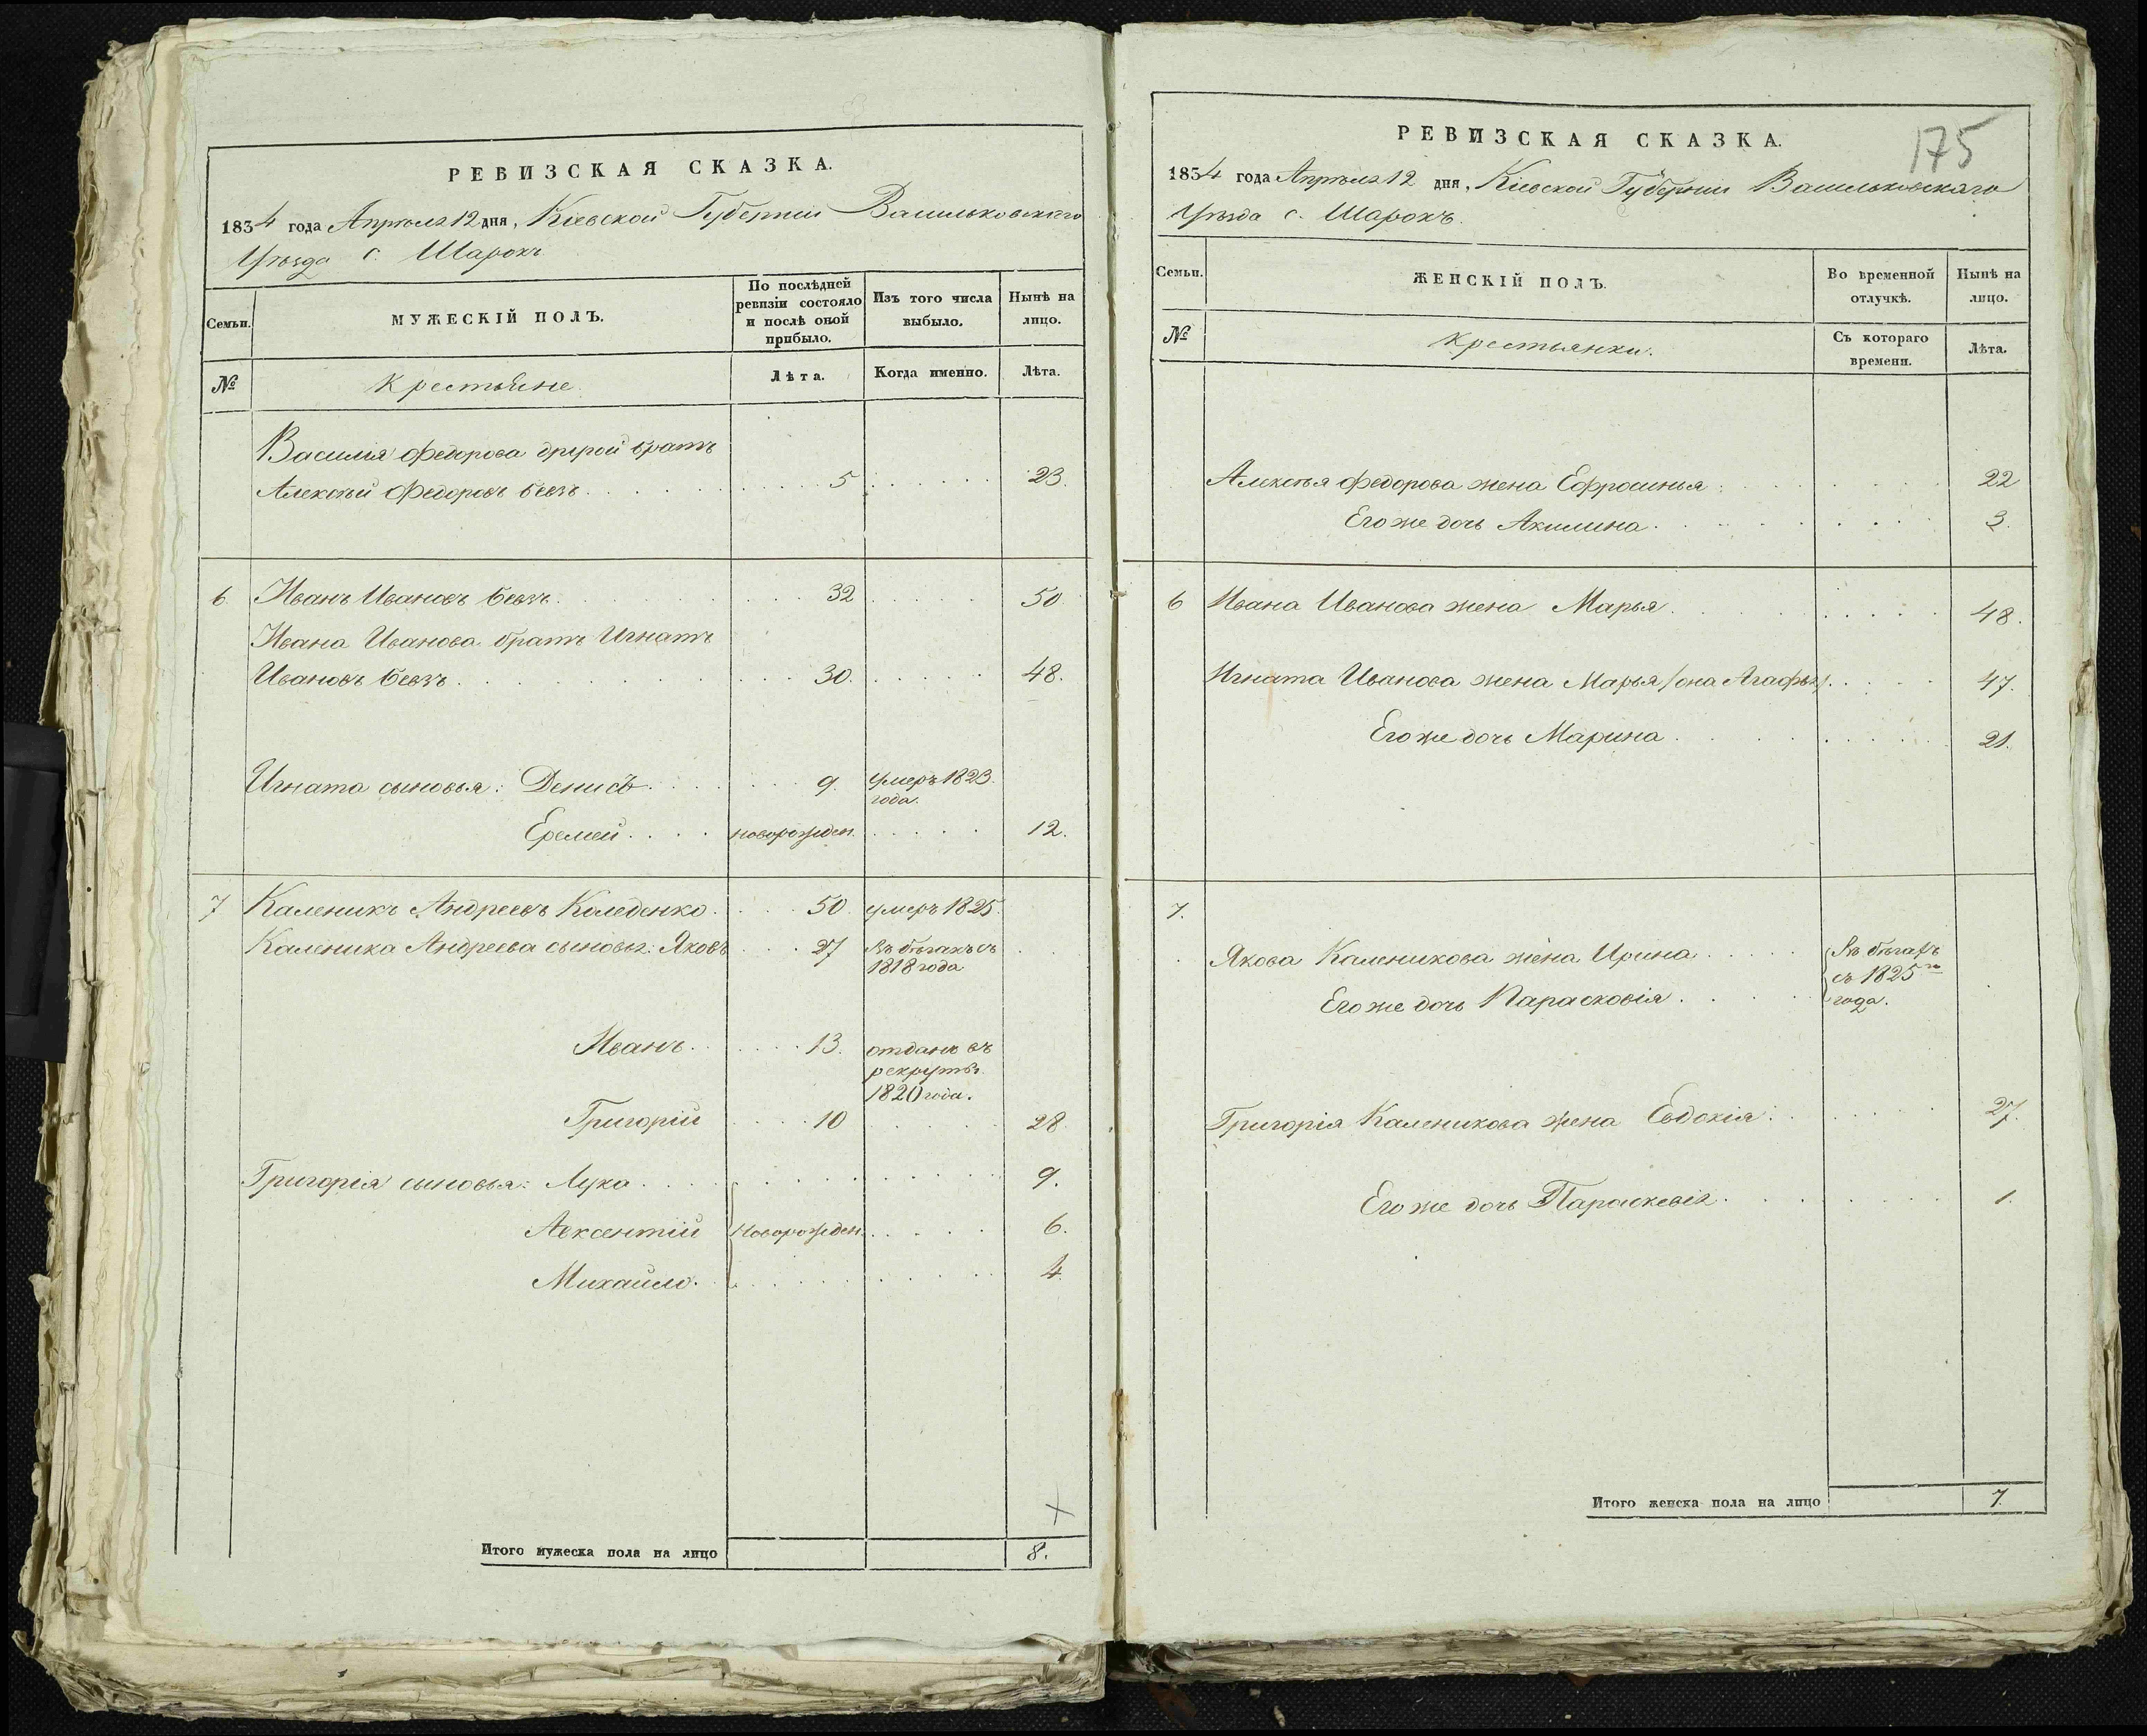 РЕВИЗСКАЯ СКАЗКА.
1834 года Апрѣля 12 дня, Кіевской Губерніи Васильковскаго
Уѣзда с. Шарокъ
Семьи.
МУЖЕСКІЙ ПОЛЪ.
По послѣдней ревизіи состояло и послѣ оной прибыло.
Изъ того числа выбыло.
Нынѣ на лицо.
№
Крестьяне.
Лѣта.
Когда именно.
Лѣта.
Василія Федорова другой братъ
Алексѣй Федоровъ Бевзъ 5 23.
6 Иванъ Ивановъ Бевзъ 32 50
Ивана Иванова братъ Игнатъ
Ивановъ Бевзъ 30. 48.
Игната сыновья: Денисъ 9. умеръ 1823.
года.
Еремей новорожден. 12.
7 Каленикъ Андреевъ Коледенко 50 умеръ 1825.
Каленика Андреева сыновья: Яковъ 27 въ бѣгахъ съ
1818 года
Иванъ 13. отданъ въ
рекруты
1820 года.
Григорій 10 28.
Григорія сыновья: Лука 9.
Авксентій Новорожден. 6.
Михайло. 4.
Итого мужеска пола на лицо 8.
175
РЕВИЗСКАЯ СКАЗКА.
1834 года Апрѣля 12 дня, Кіевской Губерніи Васильковскаго
Уѣзда с. Шарокъ.
Семьи.
ЖЕНСКІЙ ПОЛЪ.
Во временной отлучкѣ.
Нынѣ на лицо.
№
Крестьянки.
Съ котораго времени.
Лѣта.
Алексѣя Федорова жена Ефросинья 22
Его же дочь Акилина 3.
6 Ивана Иванова жена Марья 48.
Игната Иванова жена Марья /она Агафья/ 47.
Его же дочь Марина 21.
7.
Якова Каленикова жена Ирина Въ бѣгахъ
съ 1825го
Его же дочь Парасковія года.
Григорія Каленикова жена Евдокія 27.
Его же дочь Параскевія 1.
Итого женска пола на лицо 7.